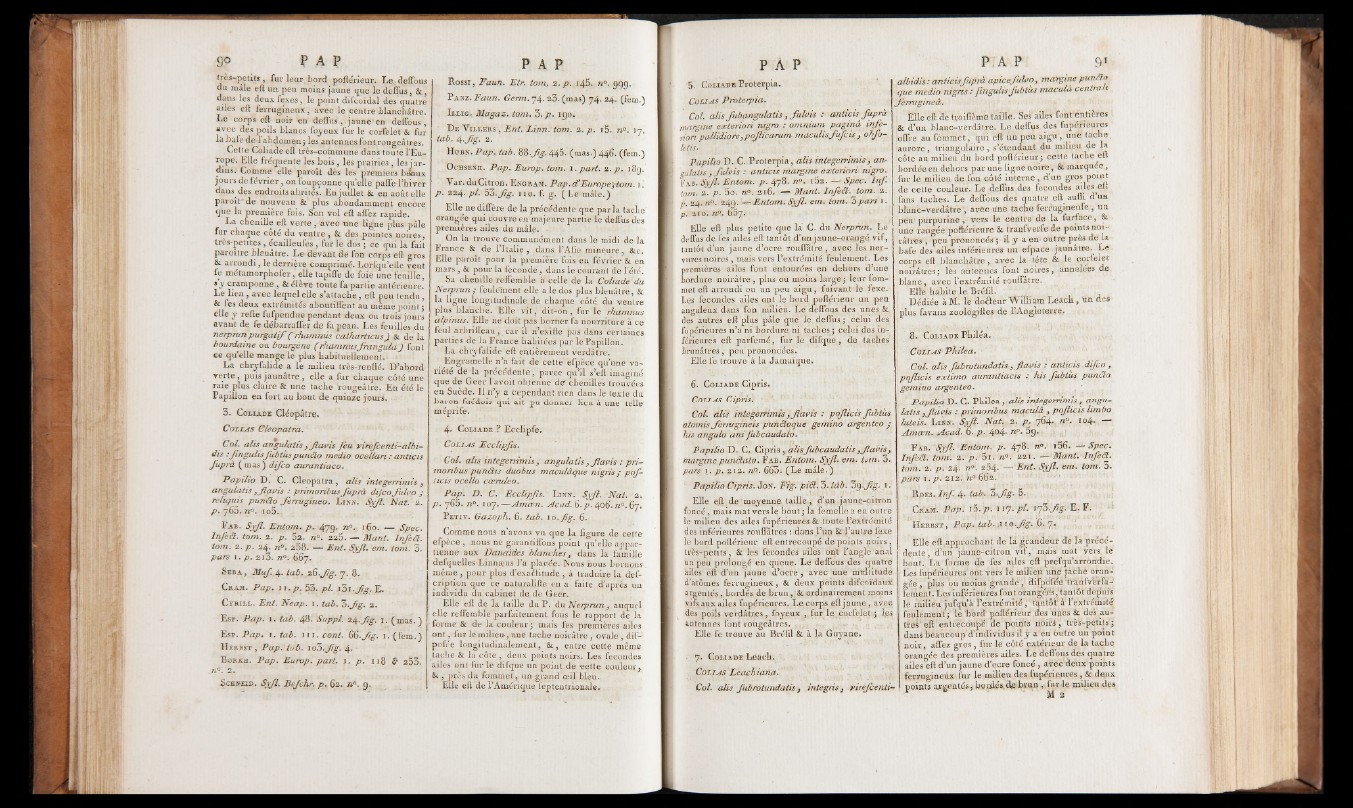 90 P A P
très-petits, ſur leur bord poſtérieur. Le deſſous
du mâle eſt un peu moins jaune que le deſſus, &,
dans les deux ſexes, le point diſcoïdal des quatre
ailes eſt ferrugineux, avec le centre blanchâtre.
Le corps eſt noir en deſſus, jaune en deſſous,
avec des poils blancs ſoyeux ſur le corſelet & ſur
la baſe de l'abdomen; les antennes ſont rougeâtres.
Cette Coliade eſt très-commune dans toute l'Eu-
rope. Elle fréquente les bois, les prairies, les jar-
dins. Comme elle paroît dès les premiers beaux
jours de février, on ſoupçonne qu'elle paſſe l'hiver
dans des endroits abrités. En juillet & en août elle
paroît de nouveau & plus abondamment encore
que la première fois. Son vol eſt aſſez rapide.
La chenille eſt verte, avec une ligne plus pâle
ſur chaque côté du ventre, & des pointes noires,
très-petites, écailleuſes, ſur le dos; ce qui la fait
paroître bleuâtre. Le devant de ſon corps eſt gros
& arrondi, le derrière comprimé. Lorſqu'elle veut
ſe métamorphoſer, elle tapiſſe de ſoie une feuille,
s'y cramponne, & élève toute ſa partie antérieure.
Le lien, avec lequel elle s'attache, eſt peu tendu,
& ſes deux extrémités aboutiſſent au même point;
elle y reſte ſuſpendue pendant deux ou trois jours
avant de ſe débarraſſer de ſa peau. Les feuilles du
nerprun purgatif (rhamnus catharticus) & de la
bourdaine ou bourgène (rhamnus frangula) ſont
ce qu'elle mange le plus habituellement.
La chryſalide a le milieu très-renflé. D'abord
verte, puis jaunâtre, elle a ſur chaque côté une
raie plus claire & une tache rougeâtre. En été le
Papillon en ſort au bout de quinze jours.
3. COLIADE Cléopâtre.
COLIAS Cleopatra.
Col. alis angulatis, flavis ſeu vireſcenti-albi-
dis: ſingulis ſubtùs puncto medio ocellari: anticis
ſuprà (mas) diſco aurantiaco.
Papilio D. C. Cleopatra, alis integerrimis,
angulatis, flavis: primoribus ſuprà diſco fulvo;
reliquis puncto ferrugineo. LINN. Syſt. Nat. 2.
p. 765. n°. 105.
FAB. Syſt. Entom. p. 479. n°. 160. — Spec.
Inſect. tom. 2. p. 52. n°. 225. — Mant. Inſect.
tom. 2. p. 24. n°. 258. — Ent. Syſt. em. tom. 3.
pars 1. p. 213. n°. 667.
SEBA, Muſ. 4. tab. 26. fig. 7. 8.
CRAM. Pap. 11. p. 55. pl. 131. fig. E.
CYRILL. Ent. Neap. 1. tab. 3. fig. 2.
ESP. Pap. 1. tab. 48. Suppl. 24. fig. 1. (mas.)
ESP. Pap. 1. tab. 111. cont. 66. fig. 1. (fem.)
HERBST, Pap. tab. 103. fig. 4.
BORKH. Pap. Europ. part. 1. p. 118 & 253.
n°. 2.
SCHNEID. Syſt. Beſchr. p. 62. n°. 9.
P A P
ROSSI, Faun. Etr. tom. 2. p. 145. n°. 999.
PANZ. Faun. Germ. 74. 23. (mas) 74. 24. (fem.)
ILLIG. Magaz. tom. 3. p. 190.
DE VILLERS, Ent. Linn. tom. 2. p. 15. n°. 17.
tab. 4. fig. 2.
HUBN. Pap. tab. 88. fig. 445. (mas.) 446. (fem.)
OCHSENH. Pap. Europ. tom. 1. part. 2. p. 189.
Var. du Citron. ENGRAM. Pap. d'Europe, tom. 1.
p. 224. pl. 53. fig. 110. f. g. (Le mâle.)
Elle ne diffère de la précédente que par la tache
orangée qui couvre en majeure partie le deſſus des
premières ailes du mâle.
On la trouve communément dans le midi de la
France & de l'Italie, dans l'Aſie mineure, &c.
Elle paroît pour la première fois en février & en
mars, & pour la ſeconde, dans le courant de l'été.
Sa chenille reſſemble à celle de la Coliade du
Nerprun; ſeulement elle a le dos plus bleuâtre, &
la ligne longitudinale de chaque côté du ventre
plus blanche. Elle vit, dit-on, ſur le rhamnus
alpinus. Elle ne doit pas borner ſa nourriture à ce
ſeul arbriſſeau, car il n'exiſte pas dans certaines
parties de la France habitées par le Papillon.
La chryſalide eſt entièrement verdâtre.
Engramelle n'a fait de cette eſpèce qu'une va-
riété de la précédente, parce qu'il s'eſt imaginé
que de Geer l'avoit obtenue de chenilles trouvées
en Suède. Il n'y a cependant rien dans le texte du
baron ſuédois qui ait pu donner lieu à une telle
mépriſe.
4. COLIADE ? Ecclipſe.
COLIAS Ecclipſis.
Col. alis integerrimis, angulatis, flavis: pri-
moribus punctis duobus maculâque nigris; poſ-
ticis ocello cæruleo.
Pap. D. C. Ecclipſis. LINN. Syſt. Nat. 2.
p. 765. n°. 107. — Amœn. Acad. 6. p. 406. n°. 67.
PETIV. Gazoph. 6. tab. 10. fig. 6.
Comme nous n'avons vu que la figure de cette
eſpèce, nous ne garantiſſons point qu'elle appar-
tienne aux Danaïdes blanches, dans la famille
deſquelles Linnæus l'a placée. Nous nous bornons
même, pour plus d'exactitude, à traduire la deſ-
cription que ce naturaliſte en a faite d'après un
individu du cabinet de de Geer.
Elle eſt de la taille du P. du Nerprun, auquel
elle reſſemble parfaitement ſous le rapport de la
forme & de la couleur; mais ſes premières ailes
ont, ſur le milieu, une tache noirâtre, ovale, diſ-
poſée longitudinalement, &, entre cette même
tache & la côte, deux points noirs. Les ſecondes
ailes ont ſur le diſque un point de cette couleur,
&, près du ſommet, un grand œil bleu.
Elle eſt de l'Amérique ſeptentrionale.
P A P
5. COLIADE Proterpia.
COLIAS Proterpia.
Col. alis ſubangulatis, fulvis: anticis ſuprà
margine exteriori nigro: omnium paginâ infe-
riori pallidiore, poſticarum maculis fuſcis, obſo-
letis.
Papilio D. C. Proterpia, alis integerrimis, an-
gulatis, fulvis: anticis margine exteriori nigro.
FAB. Syſt. Entom. p. 478. n°. 152. — Spec. Inſ.
tom. 2. p. 50. n°. 216. — Mant. Inſect. tom. 2.
p. 24. n°. 249. — Entom. Syſt. em. tom. 3 pars 1.
p. 210. n°. 657.
Elle eſt plus petite que la C. du Nerprun. Le
deſſus de ſes ailes eſt tantôt d'un jaune-orangé vif,
tantôt d'un jaune d'ocre rouſſâtre, avec les ner-
vures noires, mais vers l'extrémité ſeulement. Les
premières ailes ſont entourées en dehors d'une
bordure noirâtre, plus ou moins large; leur ſom-
met eſt arrondi ou un peu aigu, ſuivant le ſexe.
Les ſecondes ailes ont le bord poſtérieur un peu
anguleux dans ſon milieu. Le deſſous des unes &
des autres eſt plus pâle que le deſſus; celui des
ſupérieures n'a ni bordure ni taches; celui des in-
férieures eſt parſemé, ſur le diſque, de taches
brunâtres, peu prononcées.
Elle ſe trouve à la Jamaïque.
6. COLIADE Cipris.
COLIAS Cipris.
Col. alis integerrimis, flavis: poſticis ſubtùs
atomis ferrugineis punctoque gemino argenteo;
his angulo ani ſubcaudato.
Papilio D. C. Cipris, alis ſubcaudatis, flavis,
margine punctato. FAB. Entom. Syſt. em. tom. 3.
pars 1. p. 212. n°. 663. (Le mâle.)
Papilio Cipris. JON. Fig. pict. 3. tab. 39. fig. 1.
Elle eſt de moyenne taille, d'un jaune-citron
foncé, mais mat vers le bout; la femelle a en outre
le milieu des ailes ſupérieures & toute l'extrémité
des inférieures rouſſâtres: dans l'un & l'autre ſexe
le bord poſtérieur eſt entrecoupé de points noirs,
très-petits, & les ſecondes ailes ont l'angle anal
un peu prolongé en queue. Le deſſous des quatre
ailes eſt d'un jaune d'ocre, avec une multitude
d'atômes ferrugineux, & deux points diſcoïdaux
argentés, bordés de brun, & ordinairement moins
vifs aux ailes ſupérieures. Le corps eſt jaune, avec
des poils verdâtres, ſoyeux, ſur le corſelet; les
antennes ſont rougeâtres.
Elle ſe trouve au Bréſil & à la Guyane.
7. COLIADE Leach.
COLIAS Leachiana.
Col. alis ſubrotundatis, integris, vireſcenti-
P A P 91
albidis: anticis ſuprà apice fulvo, margine puncto-
que medio nigris: ſingulis ſubtùs maculâ centrali
ferrugineâ.
Elle eſt de troiſième taille. Ses ailes ſont entières
& d'un blanc-verdâtre. Le deſſus des ſupérieures
offre au ſommet, qui eſt un peu aigu, une tache
aurore, triangulaire, s'étendant du milieu de la
côte au milieu du bord poſtérieur; cette tache eſt
bordée en dehors par une ligne noire, & marquée,
ſur le milieu de ſon côté interne, d'un gros point
de cette couleur. Le deſſus des ſecondes ailes eſt
ſans taches. Le deſſous des quatre eſt auſſi d'un
blanc-verdâtre, avec une tache ferrugineuſe, un
peu purpurine, vers le centre de la ſurface, &
une rangée poſtérieure & tranſverſe de points noi-
râtres, peu prononcés; il y a en outre près de la
baſe des ailes inférieures un eſpace jaunâtre. Le
corps eſt blanchâtre, avec la tête & le corſelet
noirâtres; les antennes ſont noires, annelées de
blanc, avec l'extrémité rouſſâtre.
Elle habite le Bréſil.
Dédiée à M. le docteur William Leach, un des
plus ſavans zoologiſtes de l'Angleterre.
8. COLIADE Philéa.
COLIAS Philea.
Col. alis ſubrotundatis, flavis: anticis diſco,
poſticis extimo aurantiacis: his ſubtùs puncto
gemino argenteo.
Papilio D. C. Philea, alis integerrimis, angu-
latis, flavis: primoribus maculâ, poſticis limbo
luteis. LINN. Syſt. Nat. 2. p. 764. n°. 104. —
Amœn. Acad. 6. p. 404. n°. 59.
FAB. Syſt. Entom. p. 478. n°. 156. — Spec.
Inſect. tom. 2. p. 51. n°. 221. — Mant. Inſect.
tom. 2. p. 24. n°. 254. — Ent. Syſt. em. tom. 3.
pars 1. p. 212. n° 662.
ROES. Inſ. 4. tab. 3. fig. 5.
CRAM. Pap. 15. p. 117. pl. 173. fig. E. F.
HERBST, Pap. tab. 110. fig. 6. 7.
Elle eſt approchant de la grandeur de la précé-
dente, d'un jaune-citron vif, mais mat vers le
bout. La forme de ſes ailes eſt preſqu'arrondie.
Les ſupérieures ont vers le milieu une tache oran-
gée, plus ou moins grande, diſpoſée tranſverſa-
lement. Les inférieures ſont orangées, tantôt depuis
le milieu juſqu'à l'extrémité, tantôt à l'extrémité
ſeulement; le bord poſtérieur des unes & des au-
tres eſt entrecoupé de points noirs, très-petits;
dans beaucoup d'individus il y a en outre un point
noir, aſſez gros, ſur le côté extérieur de la tache
orangée des premières ailes. Le deſſous des quatre
ailes eſt d'un jaune d'ocre foncé, avec deux points
ferrugineux ſur le milieu des ſupérieures, & deux
points argentés, bordés de brun, ſur le milieu des
M 2